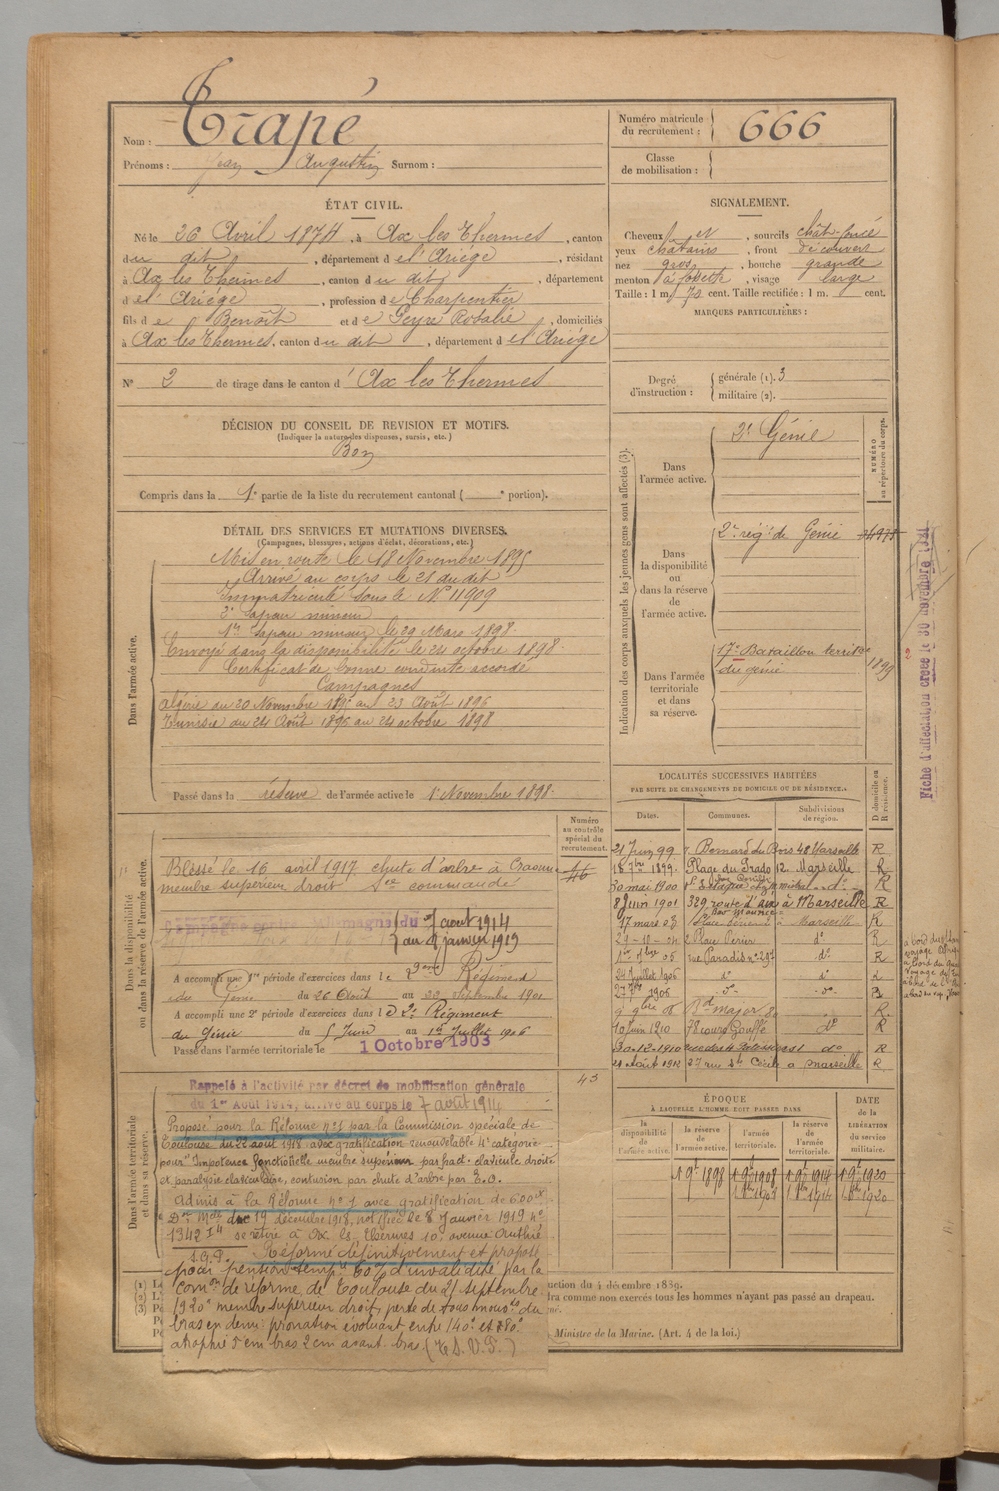 Nom : Trapé
Prénoms : Jean Augustin Surnom :
Numéro matricule du recrutement : 666
Classe de mobilisation :
ÉTAT CIVIL.
Né le 26 Avril 1874, à Ax les Thermes, canton
du dit, département de l'Ariége, résidant
à Ax les Thermes, canton du dit, département
de l'Ariége, profession de Charpentier
fils de Benoît et de Peyre Rosalie, domiciliés
à Ax les Thermes, canton du dit, département de l'Ariége
N° 2 de tirage dans le canton d'Ax les Thermes
DÉCISION DU CONSEIL DE REVISION ET MOTIFS.
(Indiquer la nature des dispenses, sursis, etc.)
Bon
Compris dans la 1e partie de la liste du recrutement cantonal ( e portion).
SIGNALEMENT.
Cheveux et, sourcils chât-foncé
yeux châtains, front découvert
nez gros, bouche grande
menton à fossette, visage large
Taille : 1 m. 70 cent. Taille rectifiée : 1 m. cent.
MARQUES PARTICULIÈRES :
Degré d'instruction : générale (1). 3
militaire (2).
Indication des corps auxquels les jeunes gens sont affectés (3).
NUMÉRO au répertoire du corps.
Dans l'armée active.
2e Génie
Dans la disponibilité ou dans la réserve de l'armée active.
2e régt de Génie
Dans l'armée territoriale et dans sa réserve.
17e Bataillon territ
du génie
1899
Fiche d'affectation créée le 30 novembre 1921
DÉTAIL DES SERVICES ET MUTATIONS DIVERSES.
(Campagnes, blessures, actions d'éclat, décorations, etc.)
Dans l'armée active.
Mis en route le 18 Novembre 1895
Arrivé au corps le 21 du dit
Immatriculé sous le N° 11909
2e Sapeur mineur
1er Sapeur mineur le 29 Mars 1898
Envoyé dans la disponibilité le 24 octobre 1898
Certificat de bonne conduite accordé
Campagnes
Algérie du 20 Novembre 1895 au 23 Août 1896
Tunisie du 24 Août 1896 au 24 octobre 1898
Passé dans la réserve de l'armée active le 1er Novembre 1898
Numéro au contrôle spécial du recrutement.
Dans la disponibilité ou dans la réserve de l'armée active.
Blessé le 16 avril 1917 chute d'arbre à Craonne
membre supérieur droit Sce commandé
Campagne contre l'Allemagne du 7 aout 1914
au 8 janvier 1919
A accompli une 1re période d'exercices dans le 2eme Régiment
du Génie du 26 Août au 22 Septembre 1901
A accompli une 2e période d'exercices dans le 2e Régiment
du Génie du 5 Juin au 1er Juillet 1906
Passé dans l'armée territoriale le 1 Octobre 1903
LOCALITÉS SUCCESSIVES HABITÉES
PAR SUITE DE CHANGEMENTS DE DOMICILE OU DE RÉSIDENCE.
D domicile ou R résidence.
Dates. Communes. Subdivisions de région.
21 Juin 99 r. Bernard du Bois 48 Marseille R
18 7bre 1899 Plage du Prado 12 Marseille R
30 mai 1900 R
8 Juin 1901 329 route d'Aix à Marseille R
17 mars 03 Marseille R
29-10-04 2 Place Perier do R
1er 7bre 05 rue Paradis n° 295 do R
24 Juillet 1906 do do R
1906 R
9 9bre 08 Bd major R
10 Juin 1910 78 cours Gouffé do R
30-12-1910 do R
21 Août 1912 27 rue Ste Cécile à Marseille R
Dans l'armée territoriale et dans sa réserve.
Rappelé à l'activité par décret de mobilisation générale
du 1er Août 1914, arrivé au corps le 7 août 1914
45
Proposé pour la Réforme n° 1 par la Commission spéciale de
Toulouse du 22 aout 1918 avec gratification renouvelable 4e catégorie
pour "Impotence fonctionnelle membre supérieur par fract. clavicule droite
et paralysie claviculaire, contusion par chute d'arbre par E.O.
Admis à la Réforme n° 1 avec gratification de 600
Don Mlle du 19 décembre 1918, notifiée le 8 Janvier 1919 n°
1342 I4 se retire à Ax les Thermes 10 avenue
S.G.P. Réformé définitivement et proposé
pour pension temp. 60% d'invalidité par la
Comon de réforme de Toulouse du 21 septembre
1920 membre supérieur droit, perte de tous mouvts du
bras en demi pronation évoluant entre 140° et 180°
atrophie 5 cm bras 2 cm avant-bras
ÉPOQUE À LAQUELLE L'HOMME DOIT PASSER DANS
la disponibilité de l'armée active. la réserve de l'armée active. l'armée territoriale. la réserve de l'armée territoriale.
DATE de la LIBÉRATION du service militaire.
1 9e 1898 1 9e 1908 1 9e 1914 1 9e 1920
1 8bre 1908 1 8bre 1914 1 8bre 1920
ction du 4 décembre 1889.
dra comme non exercés tous les hommes n'ayant pas passé au drapeau.
Ministre de la Marine. (Art. 4 de la loi.)